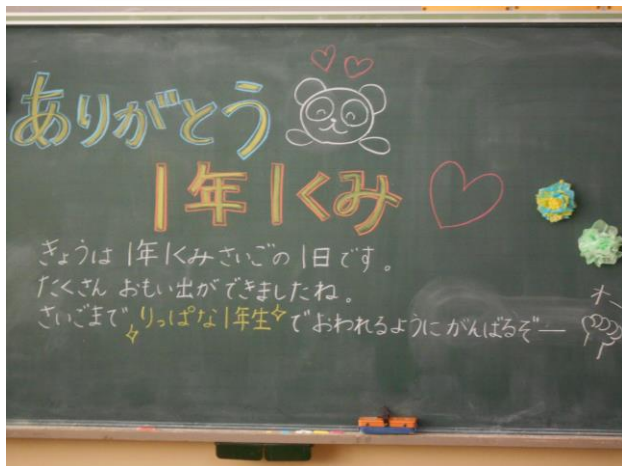 ありがとう
1年1くみ
きょうは 1年1くみさいごの1日です。
たくさん おもい出ができましたね。
さいごまで りっぱな1年生 でおわれるように がんばるぞー
オー